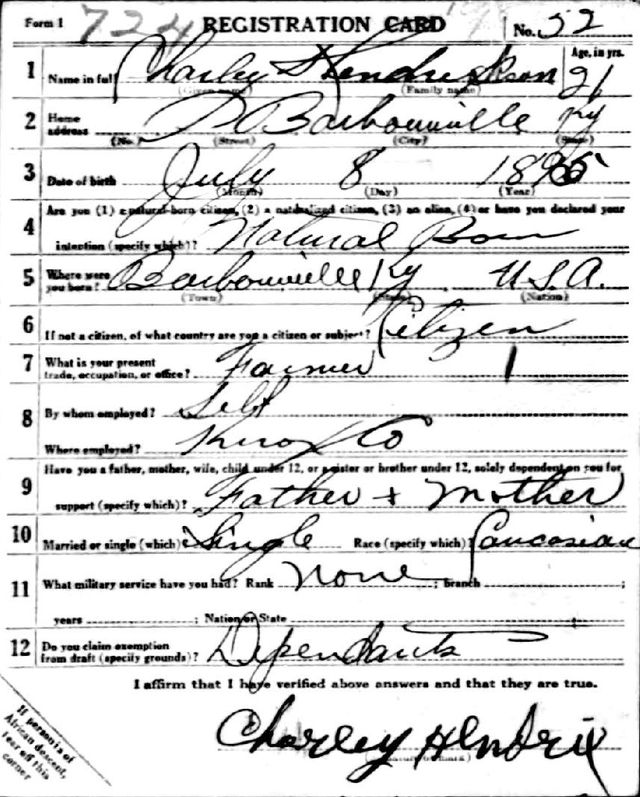 Form 1 724 REGISTRATION CARD No. 52
1 Name in full Charley D Hendrickson Age, in yrs. 21
(Given name) (Family name)
2 Home address Barbourville Ky
(No.) (Street) (City) (State)
3 Date of birth July 8 1895
(Month) (Day) (Year)
4 Are you (1) a natural-born citizen, (2) a naturalized citizen, (3) an alien, (4) or have you declared your
intention (specify which)? Natural Born
5 Where were you born? Barbourville Ky U.S.A.
(Town) (State) (Nation)
6 If not a citizen, of what country are you a citizen or subject? Citizen
7 What is your present trade, occupation, or office? Farmer
8 By whom employed? Self
Where employed? Knox Co
9 Have you a father, mother, wife, child under 12, or a sister or brother under 12, solely dependent on you for
support (specify which)? Father + Mother
10 Married or single (which)? Single Race (specify which)? Caucasian
11 What military service have you had? Rank None ; branch ;
years ; Nation or State
12 Do you claim exemption from draft (specify grounds)? Dependants
I affirm that I have verified above answers and that they are true.
Charley Hendrix
(Signature or mark)
If person is of
African descent,
tear off this
corner